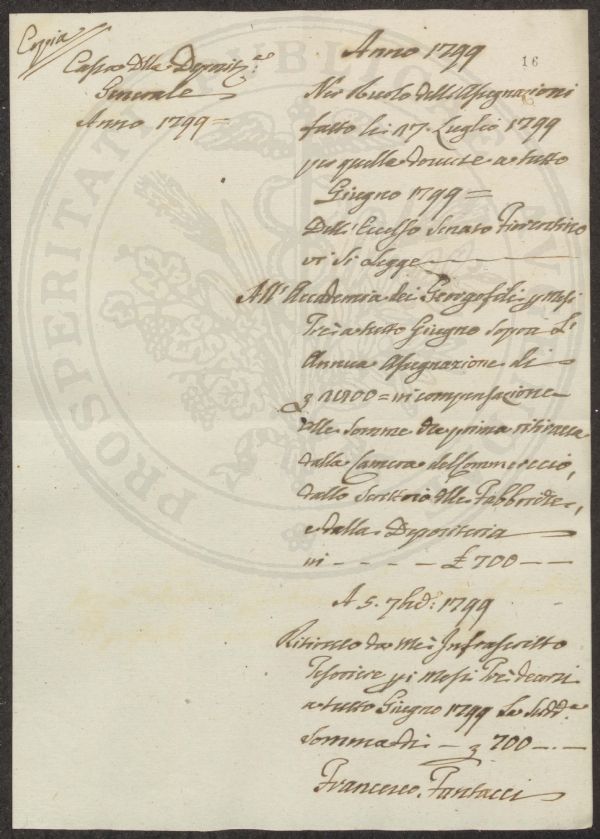 Coppia
Cassa Della Deposit.ª
Generale
Anno 1799 =
Anno 1799
16
Nel Ruolo dell'Assegnazioni
fatto li 17. Luglio 1799
per quelle dovute a tutto
Giugno 1799 =
Dell'Eccelso Senato Fiorentino
vi si legge
All'Accademia dei Georgofili p Mesi
Tre a tutto Giugno sopra L'
Annua Assegnazione di
in compensazione
delle Somme che prima ritirava
dalla Camera del Commercio,
dallo Scrittoio delle Fabbriche,
e dalla Depositeria
in - - - - £ 700 - -
A 5. 7bre: 1799
Ritirato da Me Infrascritto
Tesoriere p i Mesi Tre decorsi
a tutto Giugno 1799 La Sudd.ª
Somma di - 700 - . -
Francesco
PROSPERITATI PUBLICAE AUGENDAE